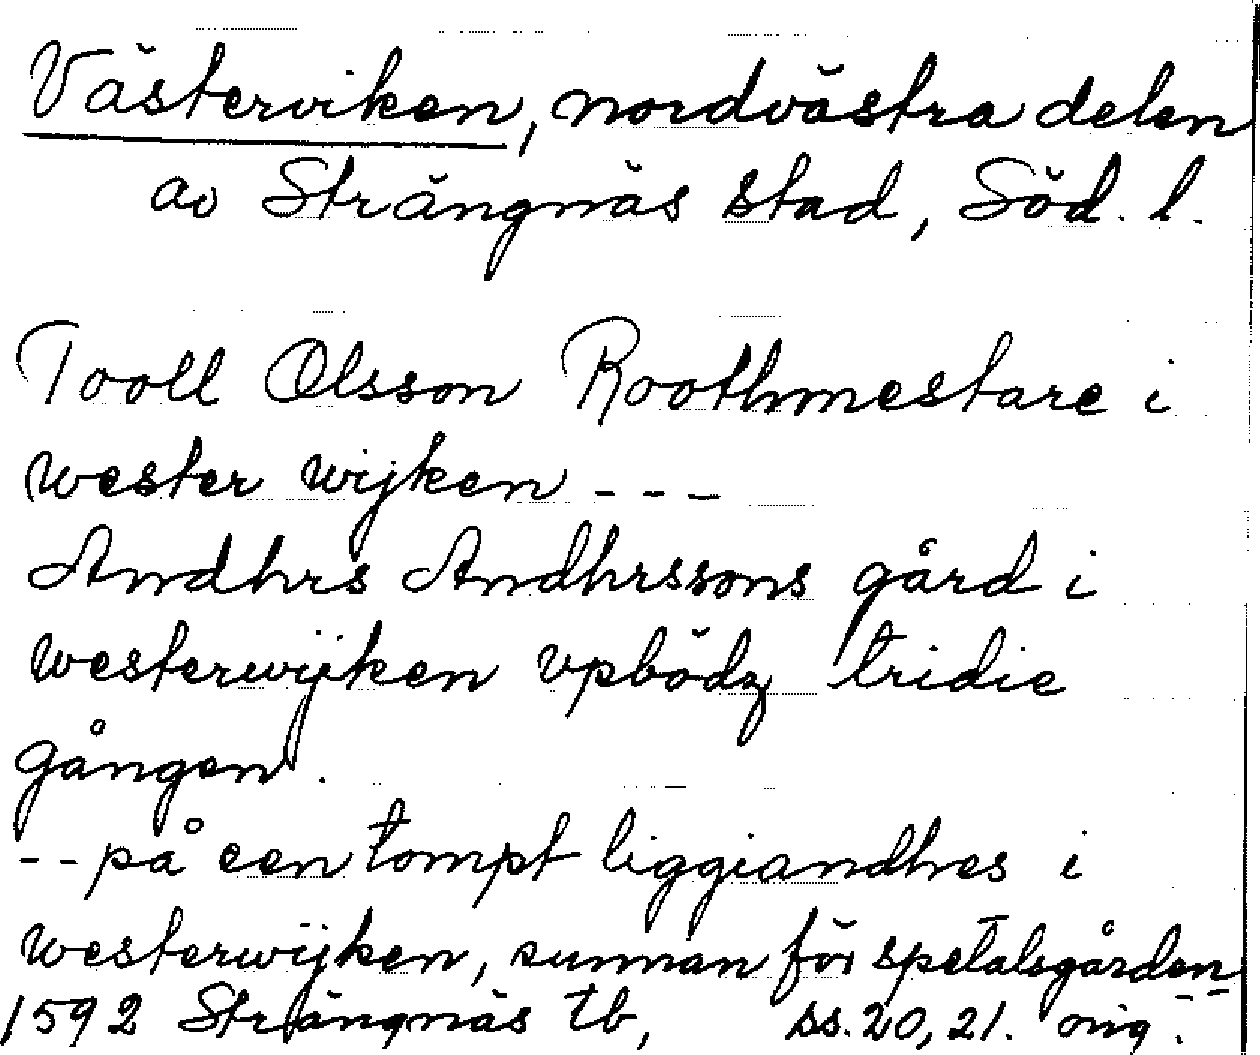 Västerviken, nordvästra delen
av Strängnäs stad, Söd. l.
Tooll Olsson Roothmestare i
wester wijken - - -
Andhrs Andhrssons gård i
westerwijken vpbödz tridie
gången.
- - på een tompt liggiandhes i
westerwijken, sunnan för spetalsgården - -
1592 Strängnäs tb, ss. 20, 21. orig.